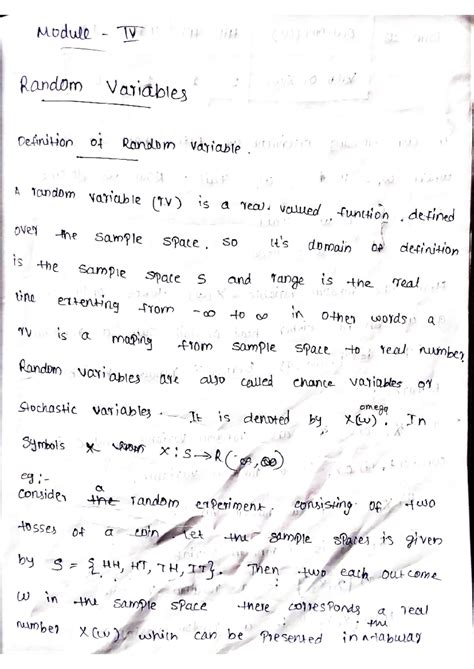 Module - IV
Random Variables
Definition of Random variable.
A random variable (rv) is a real valued function defined
over the sample space. so it's domain of definition
is the sample space S and range is the real
line extenting from -∞ to ∞ in other words a
rv is a maping from sample space to real number
Random variables are also called chance variables or
Stochastic variables. It is denoted by X(ω) omega. In
Symbols X : S→R(-∞,∞)
eg:-
Consider a random experiment consisting of two
tosses of a coin. Let the sample spaces is given
by S = {HH, HT, TH, TT}. Then two each outcome
ω in the sample space there corresponds a real
number X(ω) which can be Presented in a tabular